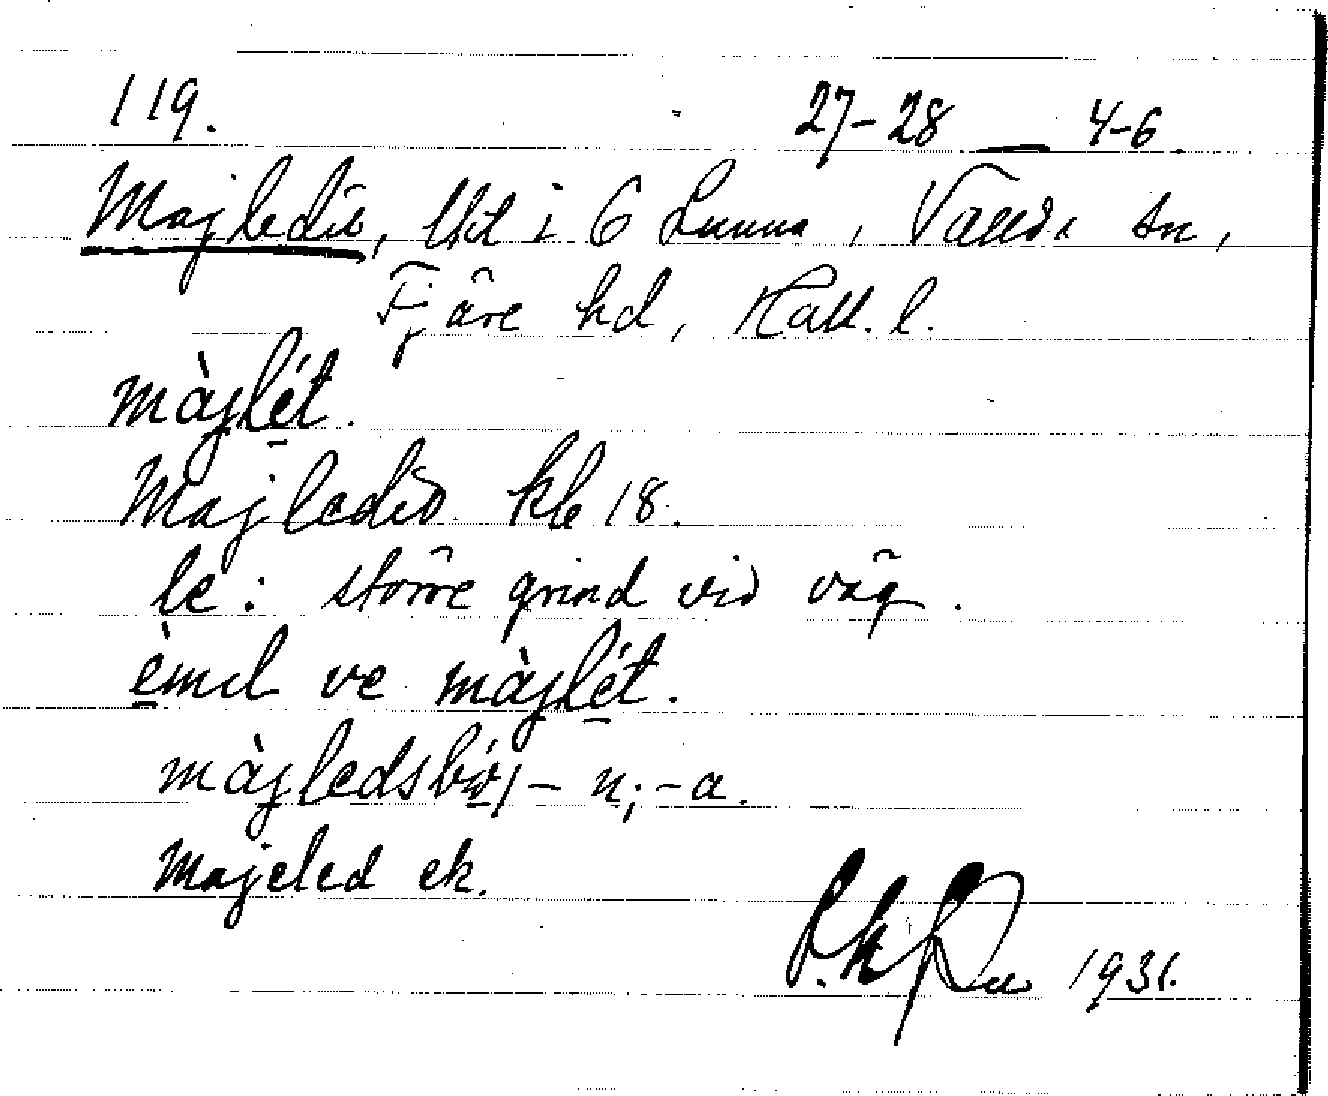 119. 27-28 — 4-6.
Majledið, lkl i 6 Lunna, Vallda sn,
Fjäre hd, Hall. l.
màjlét.
Majledið kb 18.
le: större grind vid väg.
èmel ve màjlét.
màjledsbör,-n;-a.
Majeled ek.
1931.